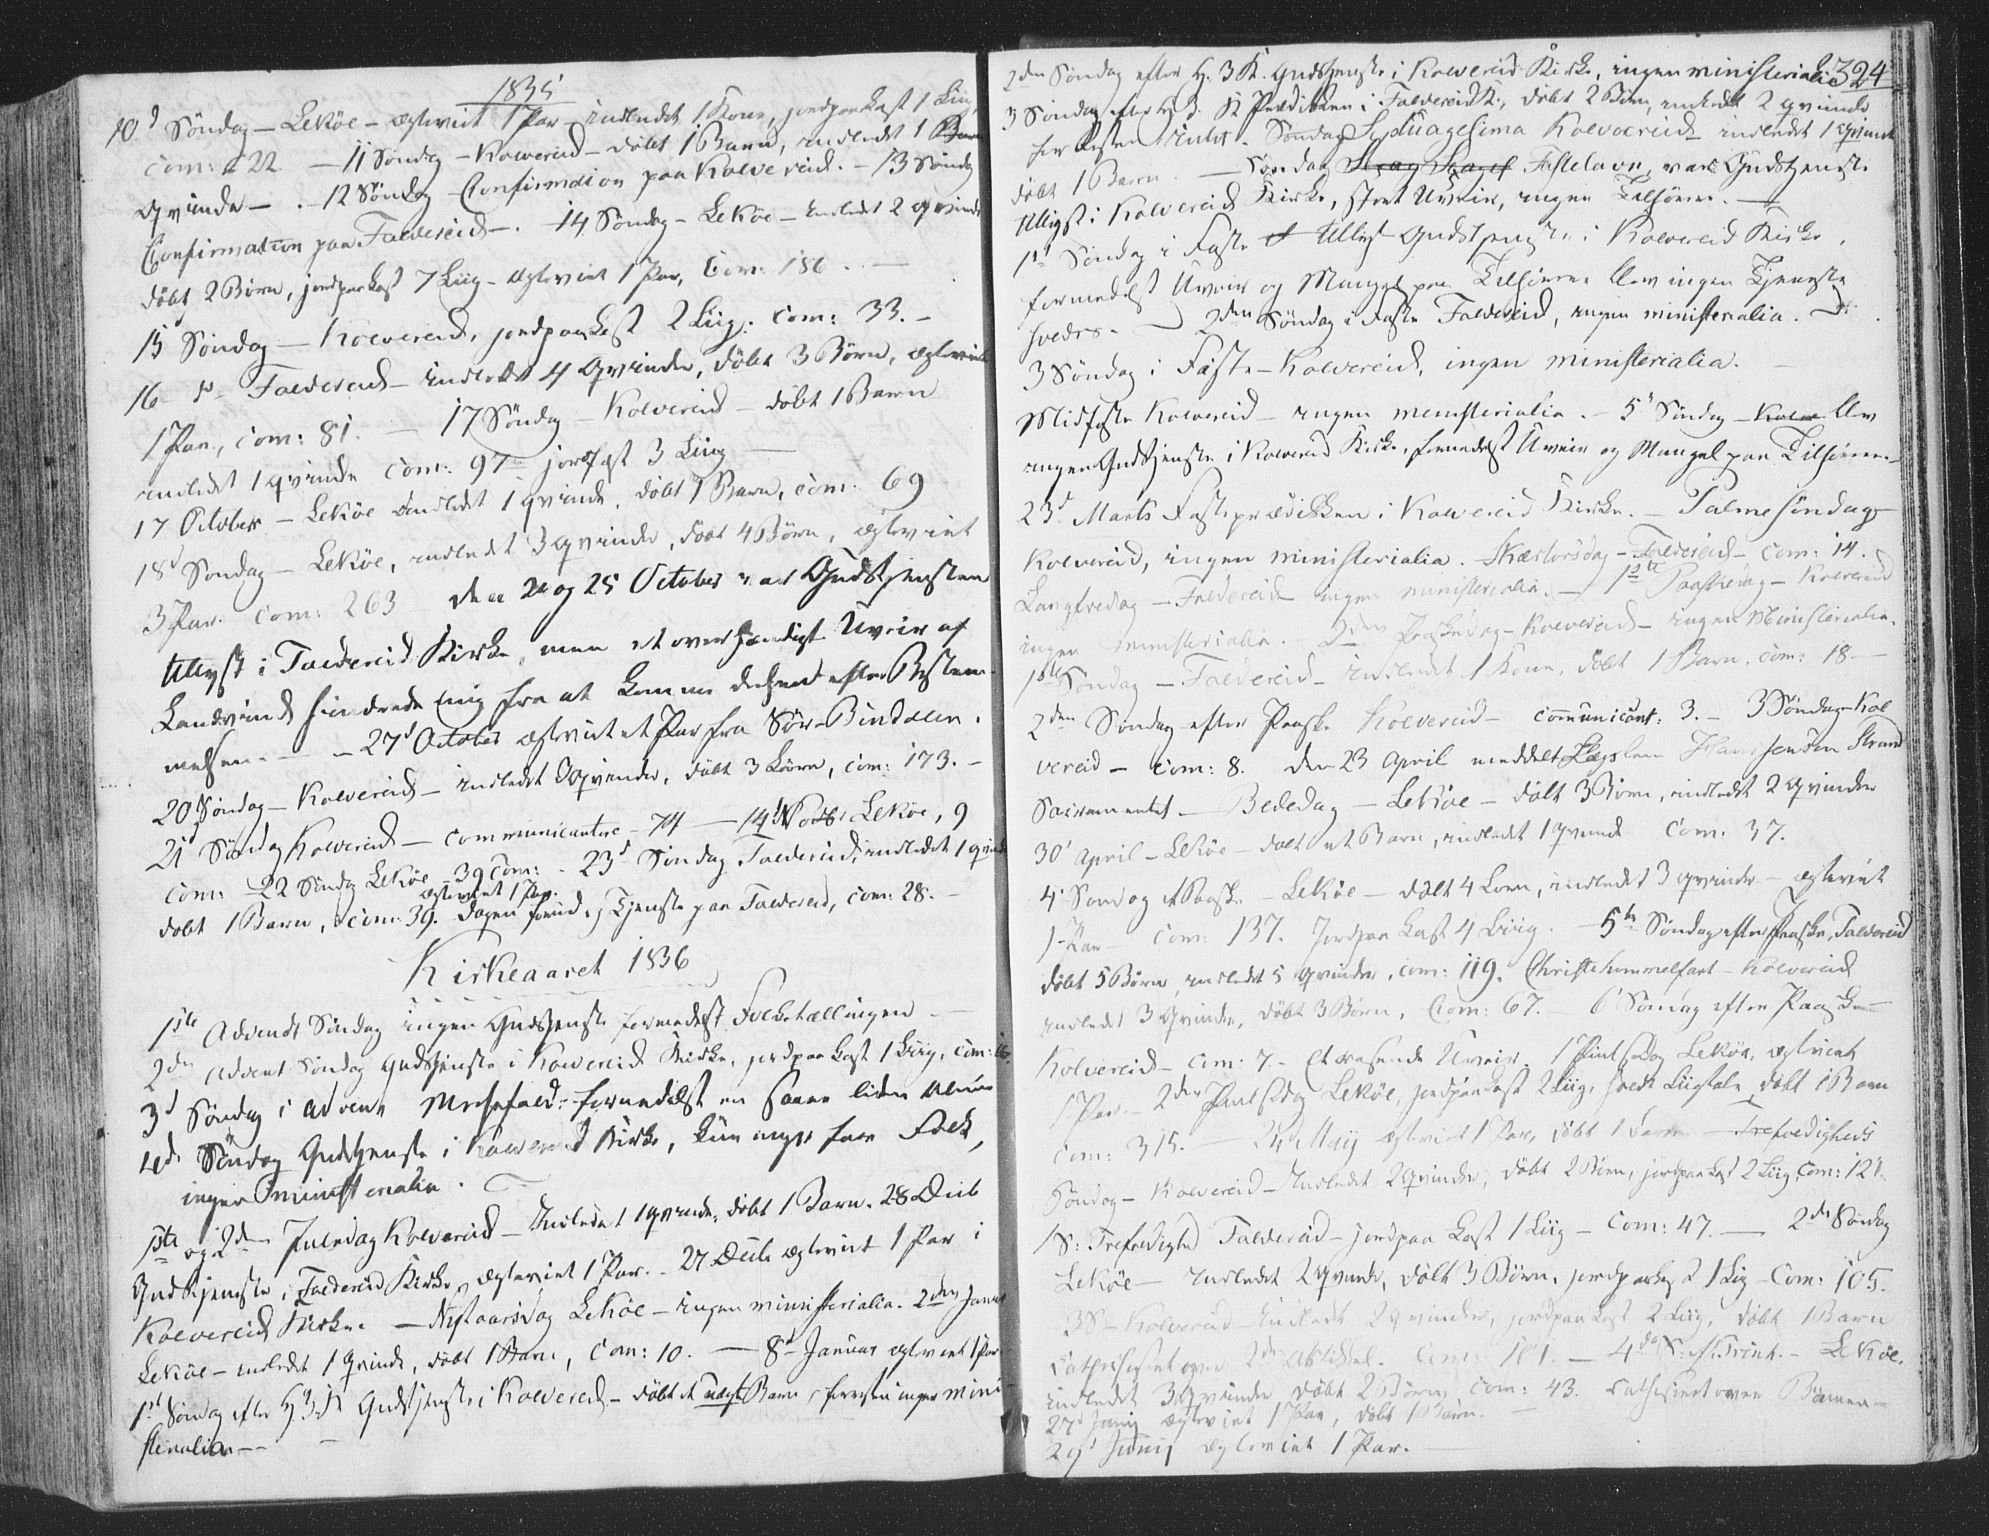 1835
10d Söndag – Lekøe – ægteviet 1 Par – indledet 1 Kone, jordpaakast 1 Liig
com: 22. – 11 Söndag – Kolvereid – döbt 1 Barn, indledt 1
Qvinde – . – 12 Söndag Confirmation paa Kolvereid. – 13 Söndag
Confirmation paa Foldereid – . 14 Söndag – Lekøe – indledt 2 Qvinder
döbt 2 Börn, jordpaakast 7 Liig – ægteviet 1 Par, Com: 186. –
15 Söndag – Kolvereid, jordpaakast 2 Liig. Com: 33. –
16 – Foldereid – indledt 4 Qvinder, döbt 3 Börn, ægteviet
1 Par, com: 81. – 17 Söndag – Kolvereid – döbt 1 Barn
indledt 1 qvinde com: 97 – jordfæst 3 Liig –
17 October – Lekøe indledt 1 qvinde, döbt 1 Barn, com: 69
18d Söndag – Lekøe, indledet 3 qvinder, döbt 4 Börn, ægteviet
3 Par. com: 263 – den 24 og 25 October var Gudstjenesten
tillyst i Foldereid Kirke, men et overhændigt Uveir af
Landvind hindrede mig fra at komme derhen efter Bestem-
melsen. – – 27d October ægteviet et Par fra Sör-Bindalen.
20d Söndag – Kolvereid – indledt 3 qvinder, döbt 3 Börn, com: 173. –
21d Söndag Kolvereid – communicantere – 74 – 14d Novbr Lekøe, 9
com: 22 Söndag Lekøe – 39 Com: – 23d Söndag Foldereid, indledet 1 qvinde
ægteviet 1 Par.
döbt 1 Barn, com: 39. Dagen forud Tjeneste paa Foldereid, com: 28. –
Kirkeaaret 1836
1ste Advents Söndag ingen Gudstjeneste formedelst Folketællingen –
2den Advent Söndag Gudstjeneste i Kolvereid Kirke, jordpaakast 1 Liig, com:
3d Söndag i Advent Messefald formedelst en saare liden Almue
4de Söndag Gudstjeneste i Kolvereid Kirke, kun meget faa Folk,
ingen ministerialia. –
1ste og 2den Juledag Kolvereid – Indledet 1 qvinde, döbt 1 Barn. 28 Decb
Gudstjeneste i Foldereid Kirke, ægteviet 1 Par. – 27 Decb ægteviet 1 Par i
Kolvereid Kirke. – Nytaarsdag Lekøe – ingen ministerialia. 2den Januar
Lekøe – indledt 1 Qvinde, döbt 1 Barn, Com: 10. – 8d Januar ægteviet 1 Par
1ste Söndag efter H 3 K Gudstjeneste i Kolvereid – döbt et Barn, foresten ingen mini-
sterialia –
324
2den Söndag efter H. 3 K. Gudstjeneste i Kolvereid Kirke, ingen ministerialia
3 Söndag efter H. 3. K Prædiken i Foldereid K., döbt 2 Börn, indledt 2 qvinder
foresten intet. – Söndag Septuagesima Kolvereid indledet 1 Qvinde
döbt 1 Barn. – Söndag Fastelavn, var Gudstjeneste
tillyst i Kolvereid Kirke, stort Uveir, ingen Tilhörere. –
1ste Söndag i Faste tillyst Gudstjeneste i Kolvereid Kirke,
formedelst Uveir og Mangel paa Tilhörere blev ingen Tjeneste
– 2den Söndag i Faste Foldereid, ingen ministerialia. –
3 Söndag i Faste – Kolvereid, ingen ministerialia.
Midfaste Kolvereid – ingen ministerialia. – 5' Söndag – blev
ingen Gudstjeneste i Kolvereid Kirke, formedelst Uveir og Mangel paa Tilhörere. –
23d Marts Fasteprædiken i Kolvereid Kirke. – Palmesöndag
Kolvereid, ingen ministerialia. Skærtorsdag – Foldereid – Com: 14.
Langfredag – Foldereid ingen ministerialia. – 1ste Paaskedag – Kolvereid
ingen ministerialia. – 2den Paaskedag – Kolvereid – ingen Ministerialia.
1ste Söndag – Foldereid – indledet 1 Kone, döbt 1 Barn, com: 18. –
2den Söndag efter Paaske Kolvereid – communicant: 3. – 3 Söndag Kol
vereid – Com: 8. den 23 April meddelt Hans Jensen Strand
Sacramentet – Bededag – Lekøe – döbt 3 Börn, indledt 2 qvinder
30' April – Lekøe – döbt et Barn, indledt 1 qvinde Com: 37.
4' Söndag ef Paaske – Lekøe – döbt 4 Börn, indledt 3 qvinder – ægteviet
1 Par – Com: 137. Jordpaakast 4 Liig. – 5te Söndag efter Paaske, Foldereid
döbt 5 Börn, indledt 5 qvinder, com: 119. Christihimmelfart – Kolvereid
indledt 3 Qvinder, döbt 3 Börn, Com: 67. – 6' Söndag efter Paaske –
Kolvereid – Com: 7 – Et rasende Uveir. 1 Pintsedag Lekøe, ægteviet
1 Par – 2den Pintsedag Lekøe, jordpaakast 2 Liig, holdt Liigtale, döbt 1 Barn
com: 315. – 24 Maij ægteviet 1 Par, döbt 1 Barn – Trefoldigheds
Söndag – Kolvereid – Indledet 2 qvinder, döbt 2 Börn, jordpaakast 2 Liig, Com: 121.
1 S: Trefoldighed Foldereid – jordpaakast 1 Liig – Com: 47. – 2den Söndag
Lekøe – Indledet 2 Qvinder, döbt 3 Börn, jordpaakast 1 Liig – Com: 105.
3 S – Kolvereid – Indledt 2 qvinder, jordpaakast 2 Liig, döbt 1 Barn
Cathechiseret over 2den Artikkel. Com: 101. – 4de S. ef. Trinit. – Lekøe.
indledet 3 Qvinder döbt 2 Börn com: 43. Cathechiseret over Bönnen –
27d Junij ægteviet 1 Par, döbt 1 Barn. –
29d Junij ægteviet 1 Par. –